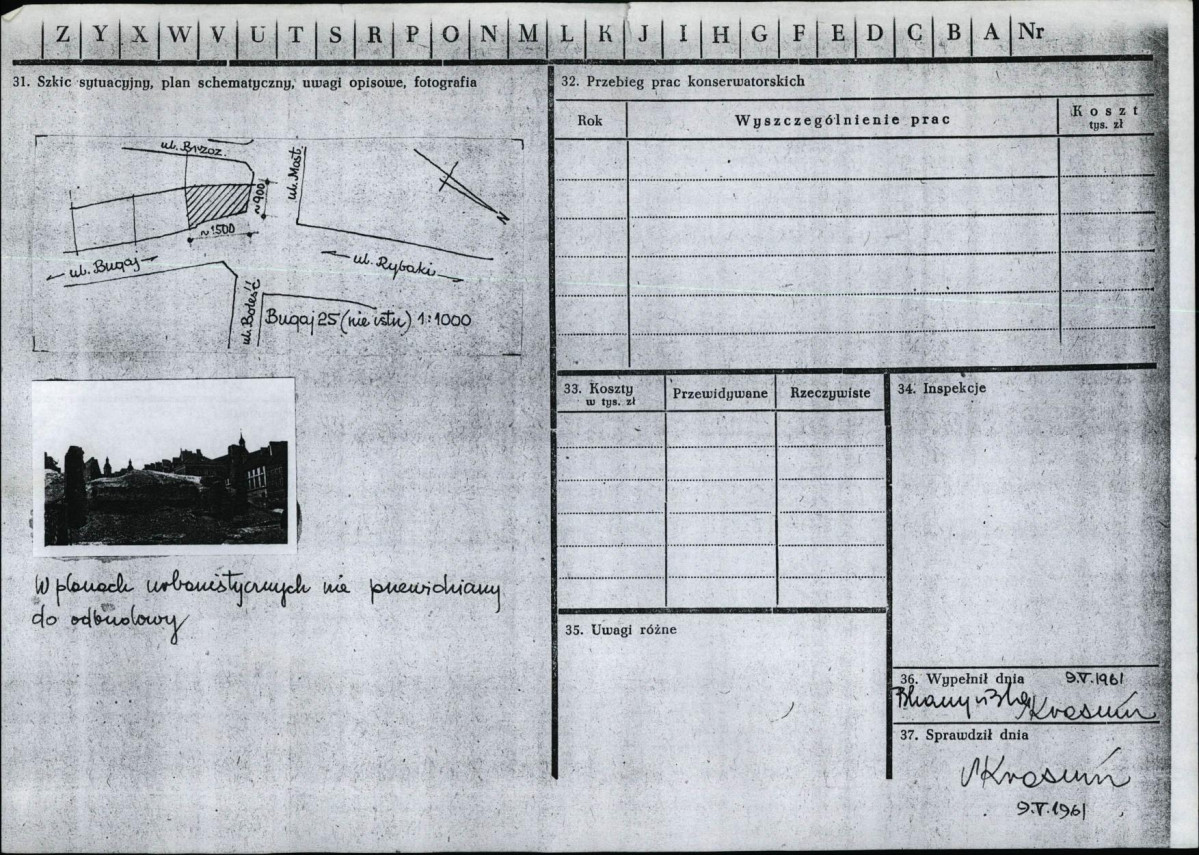 Z Y X W V U T S R P O N M L K J I H G F E D C B A Nr
31. Szkic sytuacyjny, plan schematyczny, uwagi opisowe, fotografia
ul. Brzoz.
ul. Most.
~900
~1500
N
ul. Bugaj
ul. Rybaki
ul. Boleść
Bugaj 25 (nie istn) 1:1000
W planach urbanistycznych nie przewidziany
do odbudowy
32. Przebieg prac konserwatorskich
Rok
Wyszczególnienie prac
Koszt
tys. zł
33. Koszty
w tys. zł
Przewidywane
Rzeczywiste
34. Inspekcje
35. Uwagi różne
36. Wypełnił dnia 9.V.1961
37. Sprawdził dnia
9.V.1961